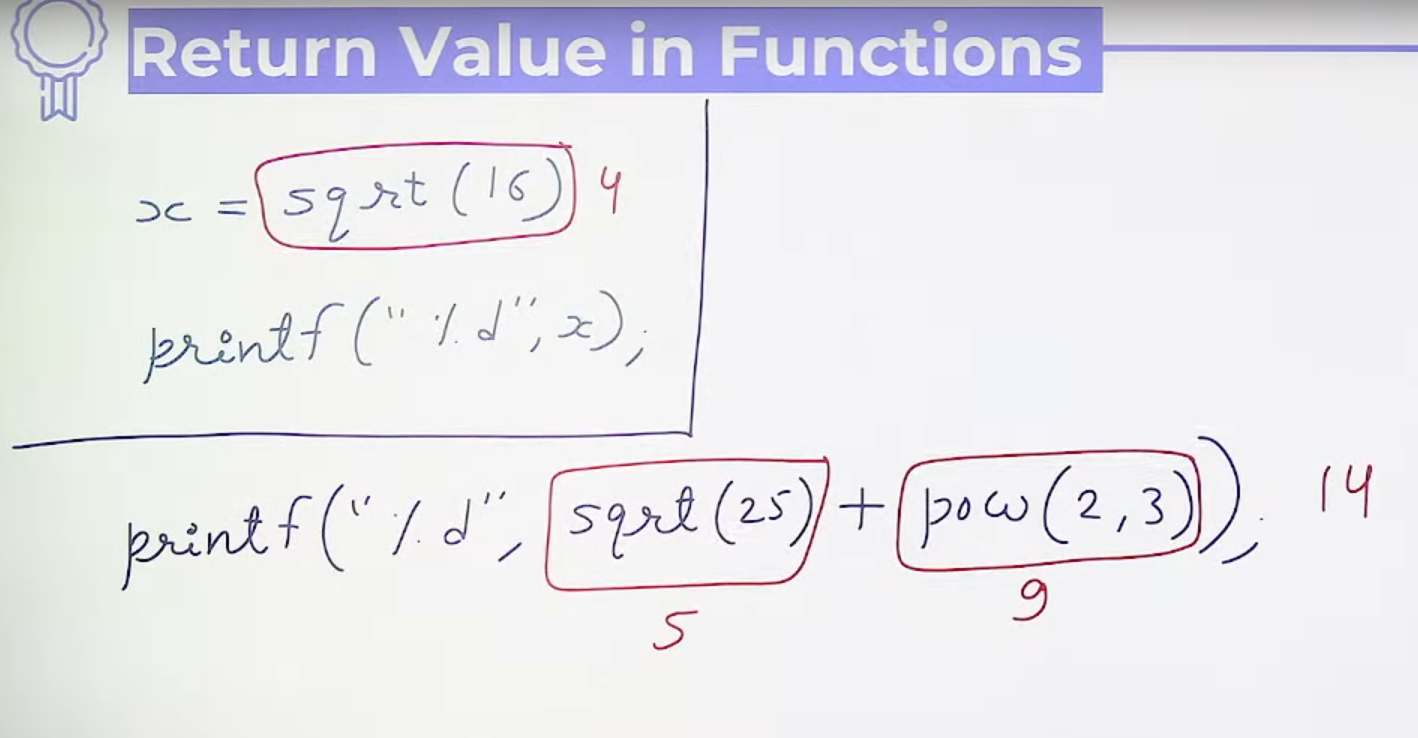 Return Value in Functions
x = sqrt (16) 4
printf ("%d", x);
printf ("%d", sqrt (25) + pow (2,3)); 14
5 9